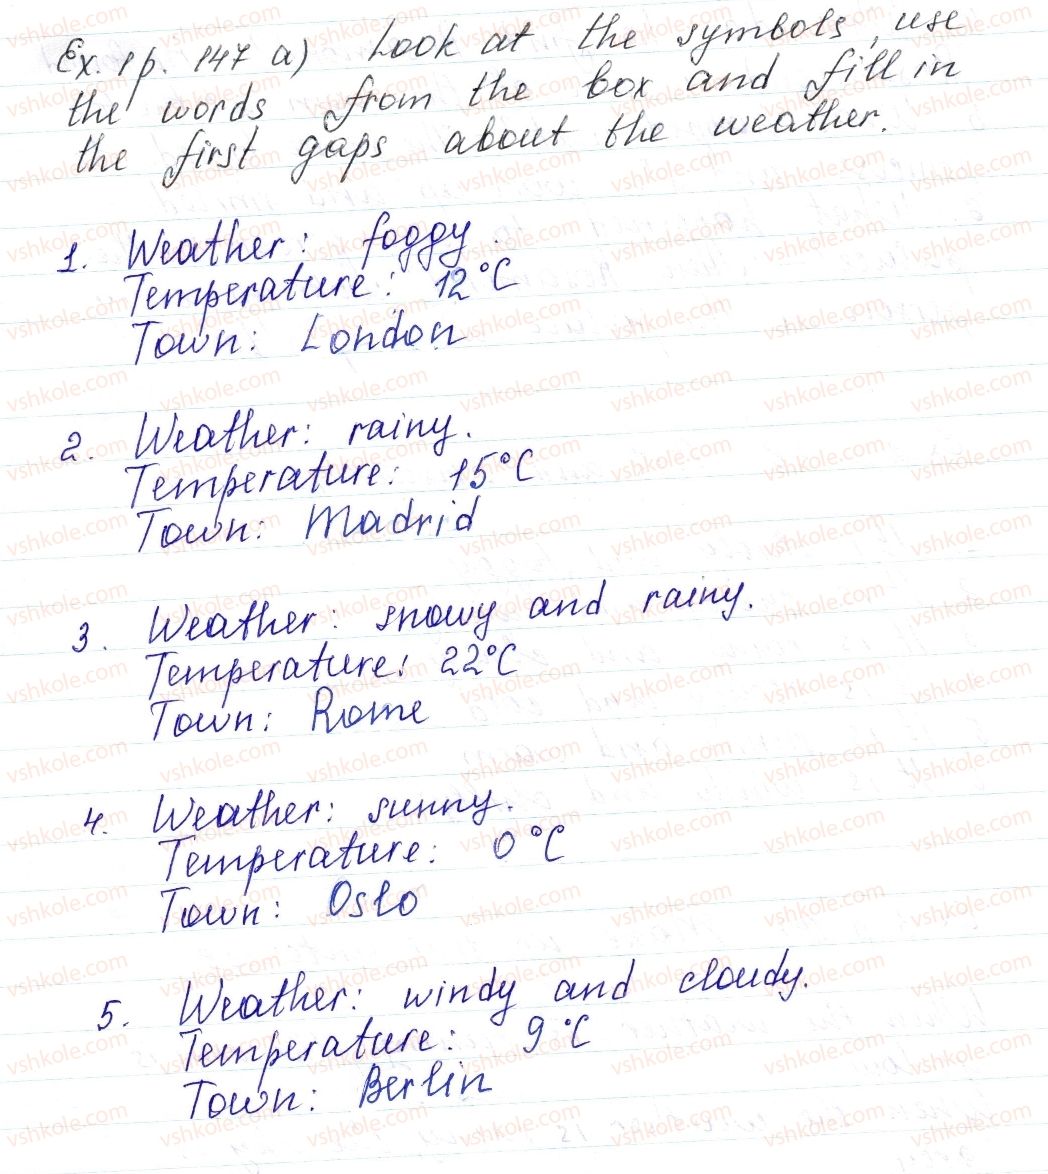 Ex. 1 p. 147 a) Look at the symbols, use
the words from the box and fill in
the first gaps about the weather.
1. Weather: foggy.
Temperature: 12°C
Town: London
2. Weather: rainy.
Temperature: 15°C
Town: Madrid
3. Weather: snowy and rainy.
Temperature: 22°C
Town: Rome
4. Weather: sunny.
Temperature: 0°C
Town: Oslo
5. Weather: windy and cloudy.
Temperature: 9°C
Town: Berlin
vshkole.com